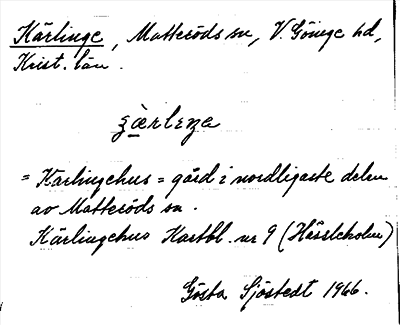 Kärlinge, Matteröds sn, V. Göinge hd,
Krist. län.
= Kärlingehus = gård i nordligaste delen
av Matteröds sn.
Kärlingehus Kartbl. nr 9 (Hässleholm)
Gösta Sjöstedt 1966.